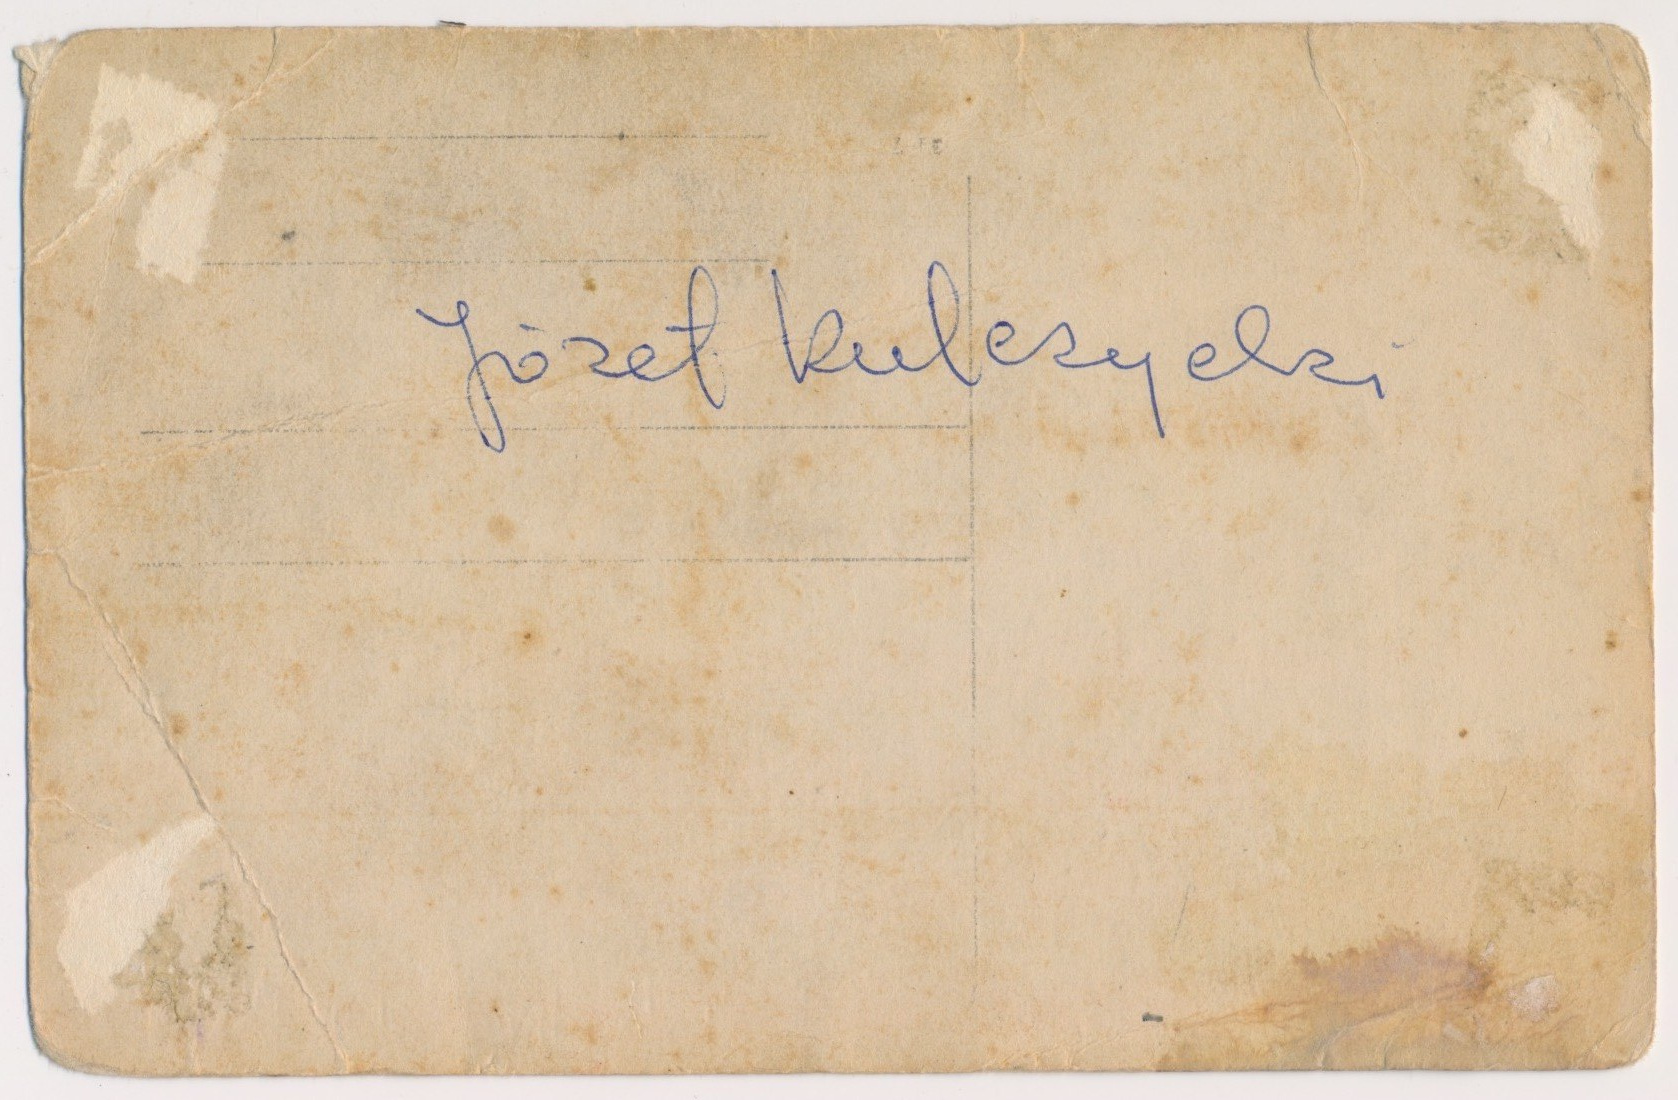 Józef Kulczycki